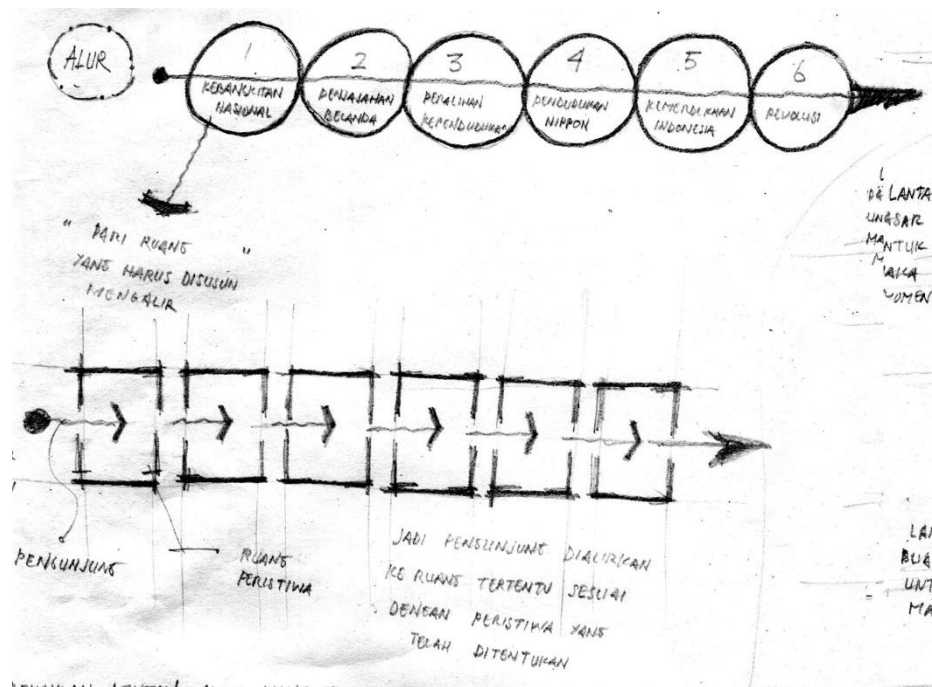 ALUR
1
KEBANGKITAN
NASIONAL
2
PENJAJAHAN
BELANDA
3
PERALIHAN
KEPENDUDUKAN
4
PENDUDUKAN
NIPPON
5
KEMERDEKAAN
INDONESIA
6
REVOLUSI
" DARI RUANG "
YANG HARUS DISUSUN
MENGALIR
PENGUNJUNG
RUANG
PERISTIWA
JADI PENGUNJUNG DIALIRKAN
KE RUANG TERTENTU SESUAI
DENGAN PERISTIWA YANG
TELAH DITENTUKAN